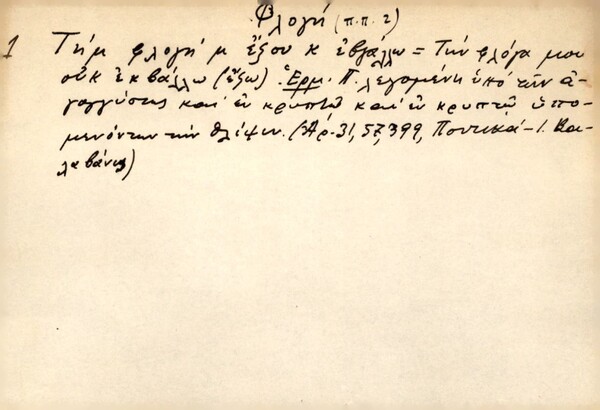 Φλογή (π.π. 2)
1 Τημ φλογή μ ἔξου κ ἐβγάλλω = Τήν φλόγα μου
οὐκ ἐκβάλλω (ἔξω) Ἑρμ. Π. λεγομένη ὑπό τῶν ἀ-
γογγύστως καί ἐν κρυπτῷ καί ἐν κρυπτῷ ὑπο-
μενόντων τήν θλῖψιν. (Ἀρ. 31, 57, 399, Ποντικά - Ι. Βα-
λαβάνης)